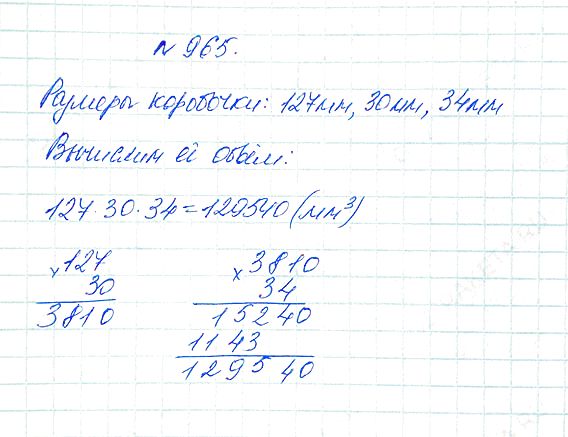 № 965.
Размеры коробочки: 127мм, 30мм, 34мм
Вычислим её объём:
127 · 30 · 34 = 129540 (мм³)
× 127
30
3810
× 3810
34
15240
1143
129540